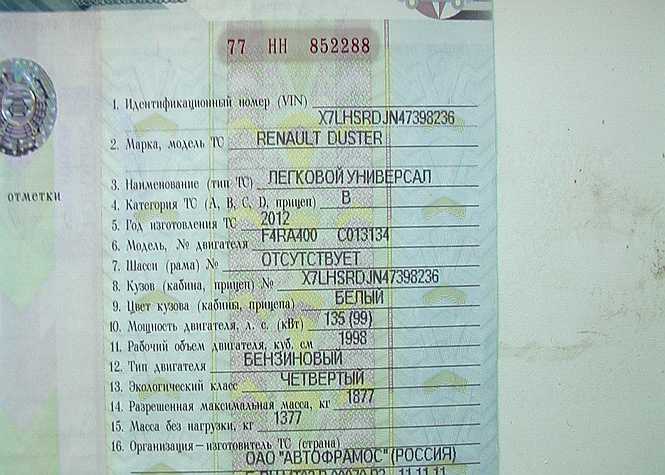 77 НН 852288
1. Идентификационный номер (VIN) X7LHSRDJN47398236
2. Марка, модель ТС RENAULT DUSTER
3. Наименование (тип ТС) ЛЕГКОВОЙ УНИВЕРСАЛ
отметки
4. Категория ТС (А, В, С, D, прицеп) В
5. Год изготовления ТС 2012
6. Модель, № двигателя F4RA400 C013134
7. Шасси (рама) № ОТСУТСТВУЕТ
8. Кузов (кабина, прицеп) № X7LHSRDJN47398236
9. Цвет кузова (кабины, прицепа) БЕЛЫЙ
10. Мощность двигателя, л. с. (кВт) 135 (99)
11. Рабочий объем двигателя, куб. см 1998
12. Тип двигателя БЕНЗИНОВЫЙ
13. Экологический класс ЧЕТВЕРТЫЙ
14. Разрешенная максимальная масса, кг 1877
15. Масса без нагрузки, кг 1377
16. Организация—изготовитель ТС (страна)
ОАО "АВТОФРАМОС" (РОССИЯ)
11.11.11